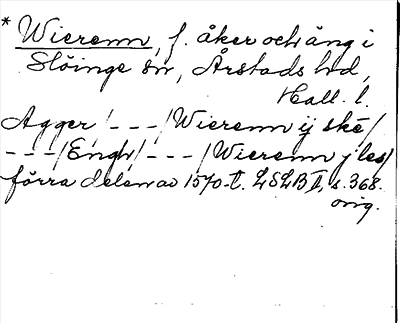 * Wierenn, f. åker och äng i
Slöinge sn, Årstads hd,
Hall. l.
Agger / - - - / Wierenn ij ske /
- - - / Engh / - - - / Wierenn j les /
förra delen av 1570-t. LSLB II, s. 368.
orig.